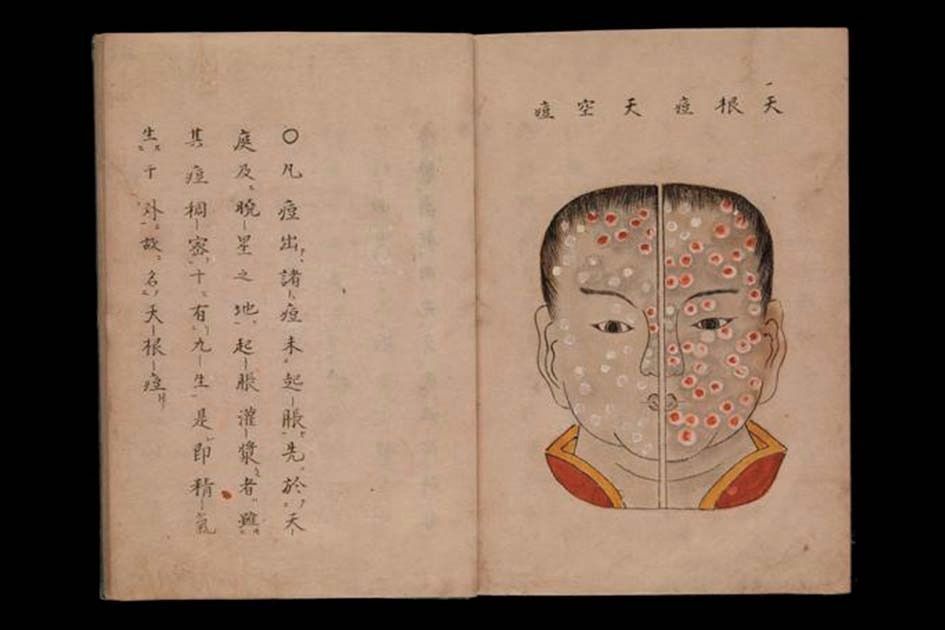 天根痘 天空痘
〇凡痘出諸痘未起脹先於天
庭及晩星之地起脹灌漿者雖
其痘稠密十有九生是即精氣
生于外故名天根痘